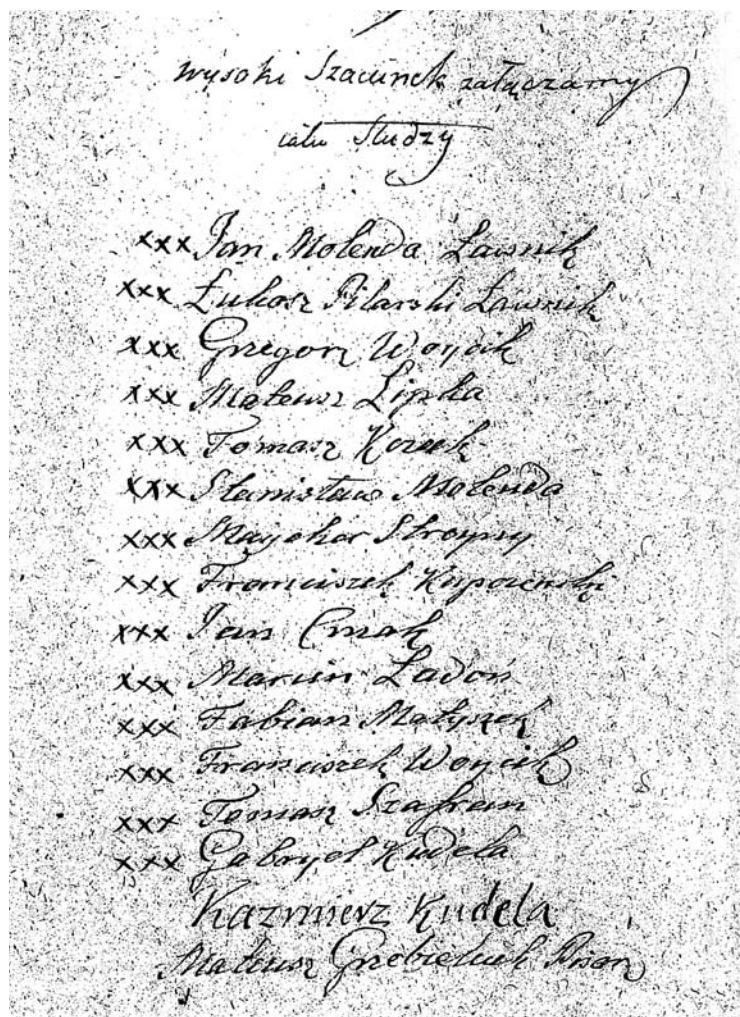 wysoki Szacunek załączamy
cału Słudzy
xxx Jan Molenda Ławnik
xxx Łukasz Pilarski Ławnik
xxx Grzegorz Woycik
xxx Mateusz Lipka
xxx Tomasz
xxx Stanisław Molenda
xxx Maycher Stroyny
xxx Franciszek
xxx Jan Cmak
xxx Marcin Ładoń
xxx Fabian Matyszek
xxx Franciszek Woycik
xxx Tomasz Szafran
xxx Gabryel Kudela
Kazmierz Kudela
Mateusz Pisarz